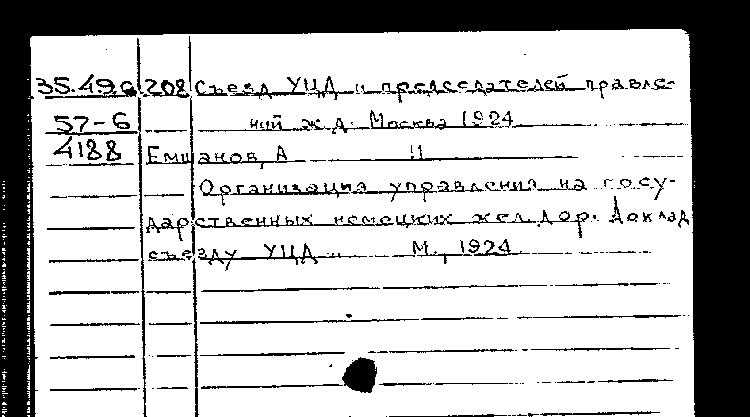 35.49с 208 Съезд УЦД и председателей правле-
57-6 ний ж.д. Москва 1924
4188 Емшанов, А II
Организация управления на госу-
дарственных немецких жел. дор. Доклад
съезду УЦД и М., 1924